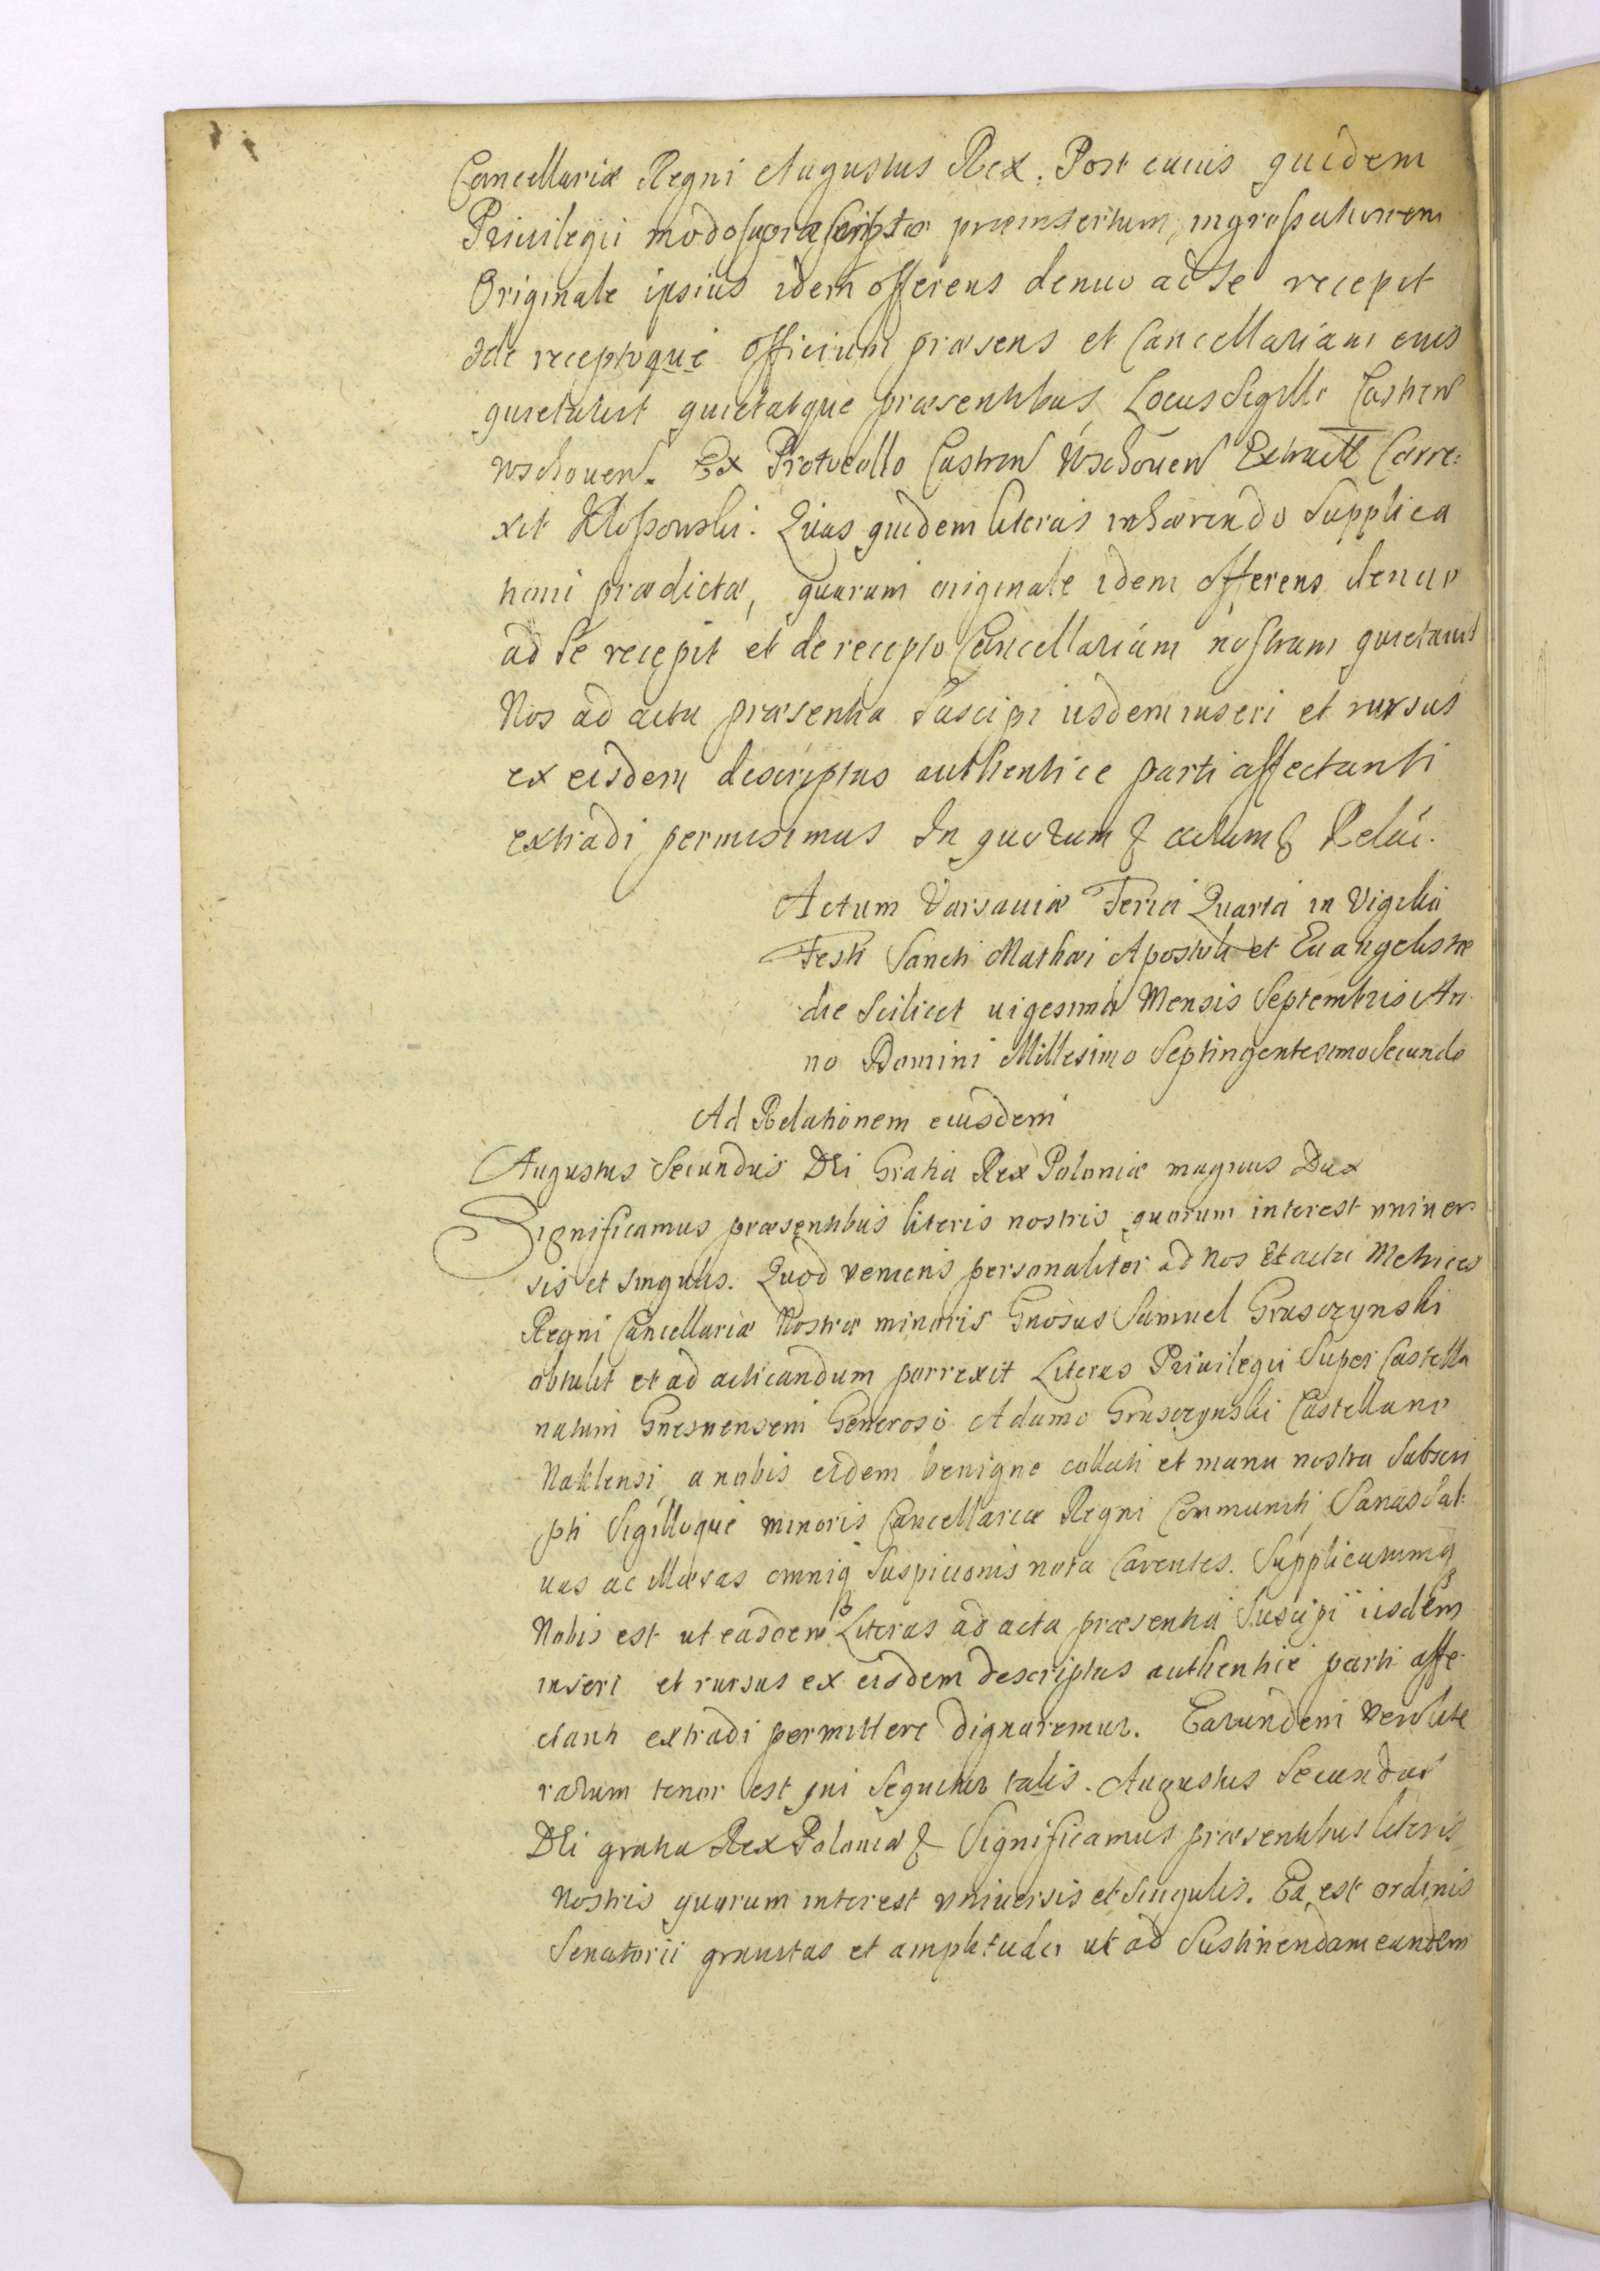 Cancellariæ Regni Augustus Rex. Post cuius quidem
Priuilegii modo supra scripto præinsertum, ingrossationem
Originale ipsius idem offerens denuo ad se recepit
de receptoque officium præsens et Cancellariam eius
quietauit quietatque præsentibus Locus Sigilli Castren
Wschouen. Ex Protocollo Castren Wschouen Extract Corre:
xit Kłossowski. Quas quidem literas inhærendo Supplica
tioni prædictæ, quarum originale idem offerens denuo
ad Se recepit et de recepto Cancellariam nostram quietauit
Nos ad acta præsentia Suscipi iisdem inseri et rursus
ex eisdem descriptas authentice parti affectanti
extradi permisimus In quorum & actum & Relāi.
Actum Varsauiæ Feria Quarta in Vigilia
Festi Sancti Mathæi Apostoli et Euangelistæ
die Scilicet uigesima Mensis Septembris An
no Domini Millesimo Septingentesimo Secundo
Ad Relationem eiusdem
Augustus Secundus Dei Gratia Rex Poloniæ magnus Dux
Significamus præsentibus literis nostris quorum interest vniuer
sis et singulis. Quod veniens personaliter ad Nos Et acta Metrices
Regni Cancellariæ Nostræ minoris Gnosus Samuel Grusczynski
obtulit et ad acticandum porrexit Literas Priuilegii Super Castella
natum Gnesnensem Generoso Adamo Grusczynski Castellano
Naklensi, a nobis eidem benigne collati et manu nostra Subscri
pti Sigilloque minoris Cancellariæ Regni Communiti, Sanas Sal
uas ac illæsas omniq Suspicionis nota Carentes. Supplicatumq
Nobis est ut easdem Literas ad acta præsentia Suscipi iisdem
inseri et rursus ex eisdem descriptas authentice parti affe
ctanti extradi permittere dignaremur. Earundem Vero Lite
rarum tenor est qui Sequitur talis. Augustus Secundus
Dei gratia Rex Poloniæ & Significamus præsentibus literis
Nostris quorum interest vniuersis et Singulis. Ea est ordinis
Senatorii grauitas et amplitudo ut ad Sustinendam eandem